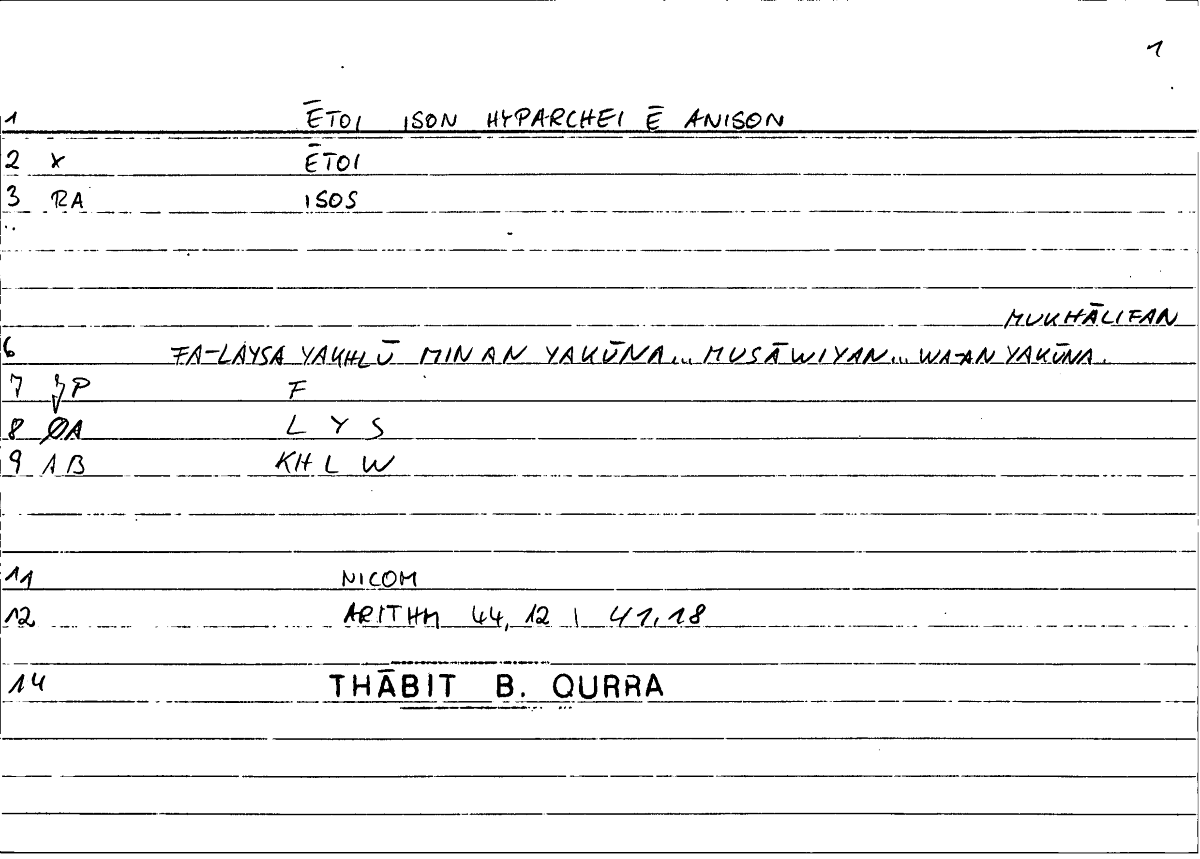 1
1 ĒTOI ISON HYPARCHEI Ē ANISON
2 X ĒTOI
3 RA ISOS
MUKHĀLIFAN
6 FA-LAYSA YAKHLŪ MIN AN YAKŪNA... MUSĀWIYAN... WA-AN YAKŪNA.
7 P F
8 ØA L Y S
9 AB KH L W
11 NICOM
12 ARITHM 44, 12 | 41,18
14 THĀBIT B. QURRA